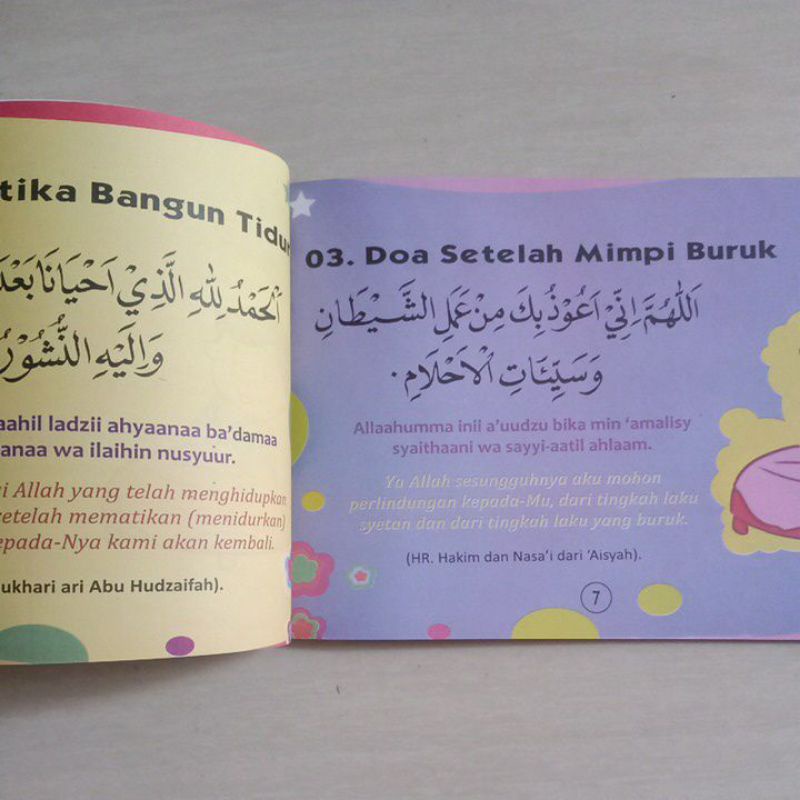 tika Bangun Tidur
اَلْحَمْدُ لِلّٰهِ الَّذِيْ اَحْيَانَا بَعْدَ
وَاِلَيْهِ النُّشُوْرُ
aahil ladzii ahyaanaa ba'damaa
anaa wa ilaihin nusyuur.
i Allah yang telah menghidupkan
setelah mematikan (menidurkan)
epada-Nya kami akan kembali.
ukhari ari Abu Hudzaifah).
03. Doa Setelah Mimpi Buruk
اَللّٰهُمَّ اِنِّيْ اَعُوْذُ بِكَ مِنْ عَمَلِ الشَّيْطَانِ
وَسَيِّئَاتِ الْاَحْلَامِ.
Allaahumma inii a'uudzu bika min 'amalisy
syaithaani wa sayyi-aatil ahlaam.
Ya Allah sesungguhnya aku mohon
perlindungan kepada-Mu, dari tingkah laku
syetan dan dari tingkah laku yang buruk.
(HR. Hakim dan Nasa'i dari 'Aisyah).
7